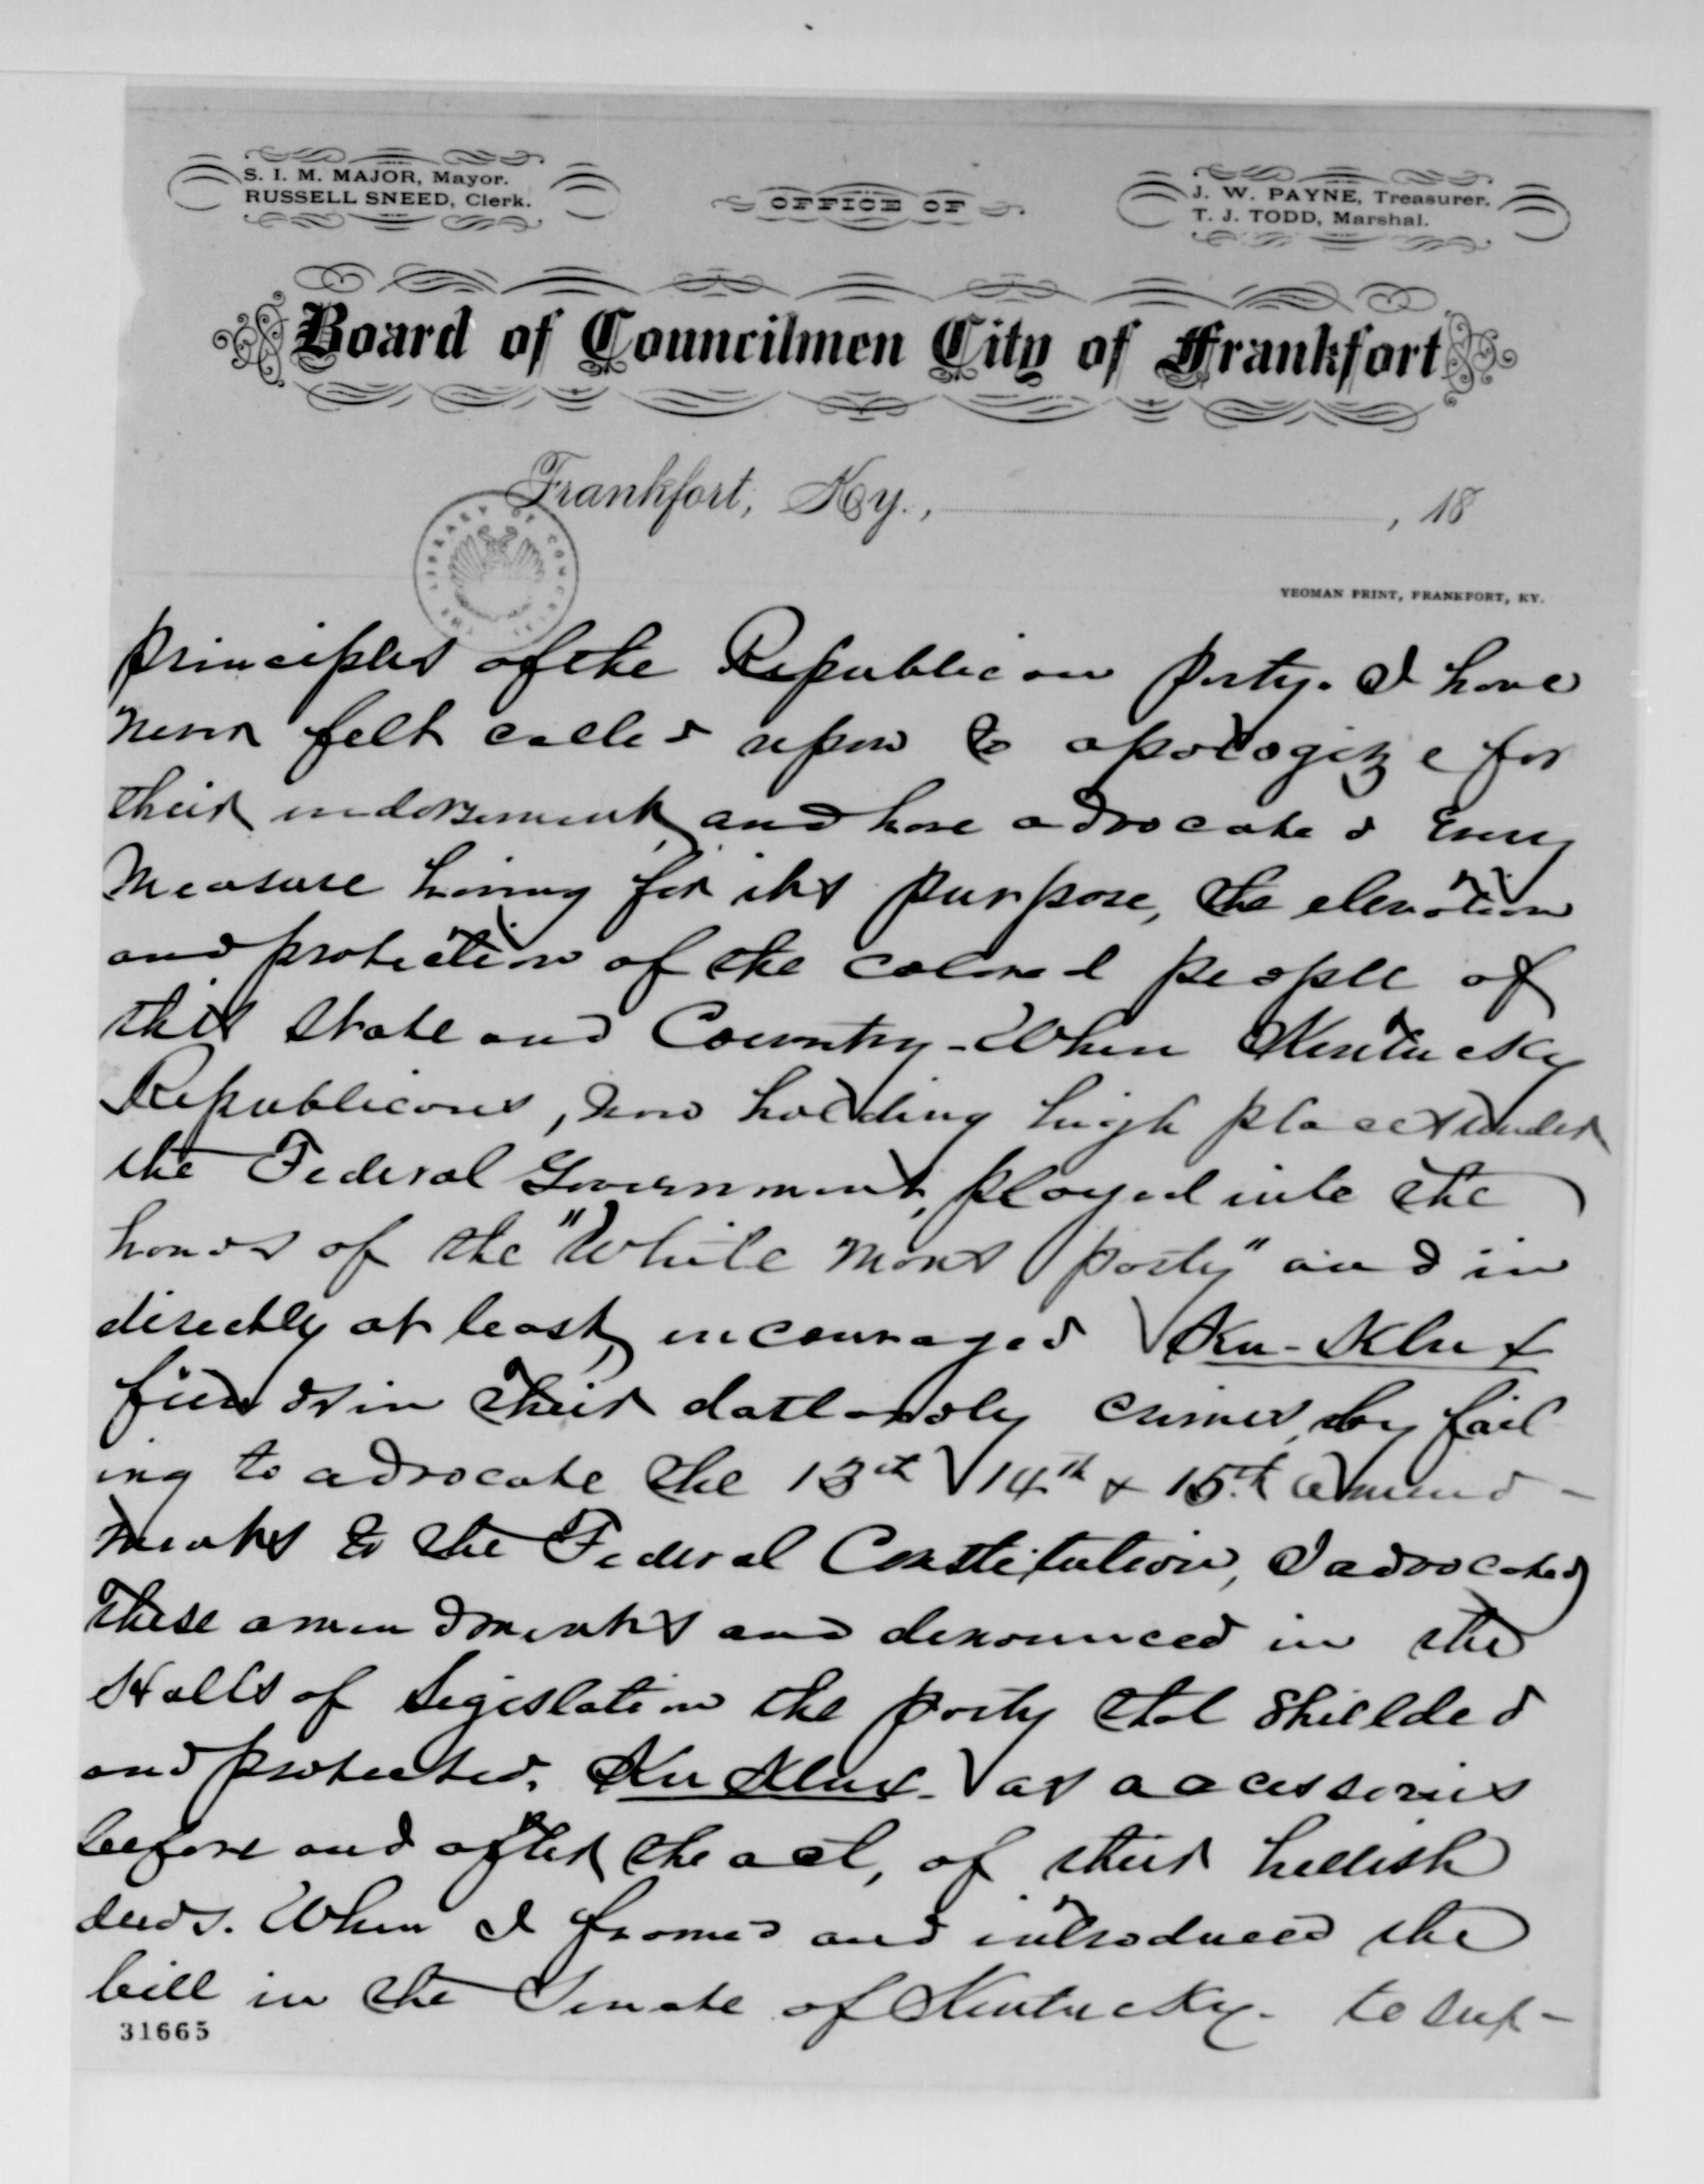 S. I. M. MAJOR, Mayor.
RUSSELL SNEED, Clerk.
OFFICE OF
J. W. PAYNE, Treasurer.
T. J. TODD, Marshal.
Board of Councilmen City of Frankfort
Frankfort, Ky., , 18
THE LIBRARY OF CONGRESS
YEOMAN PRINT, FRANKFORT, KY.
principles of the Republican party. I have
never felt called upon to apologize for
their indorsement, and have advocated every
measure having for its purpose, the elevation
and protection of the colored people of
this State and Country - When Kentucky
Republicans, now holding high places under
the Federal Government, played into the
hands of the "White mans party" and in
directly at least, encouraged Ku-Klux
fiends in their dastardly crimes, by fail
ing to advocate the 13th 14th & 15th amend-
ments to the Federal Constitution, I advocated
these amendments and denounced in the
Halls of Legislation the party that shielded
and protected, Ku Klux - as accessories
before and after the act, of their hellish
deeds. When I framed and introduced the
bill in the Senate of Kentucky - to sup-
31665